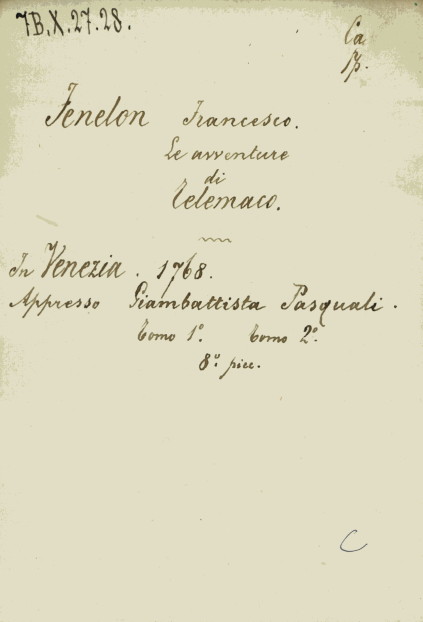 7B.X.27.28.
Ca
Fenelon Francesco.
Le avventure
di
Telemaco.
In Venezia. 1768.
Appresso Giambattista Pasquali.
Tomo 1º. Tomo 2º.
8º. picc.
C